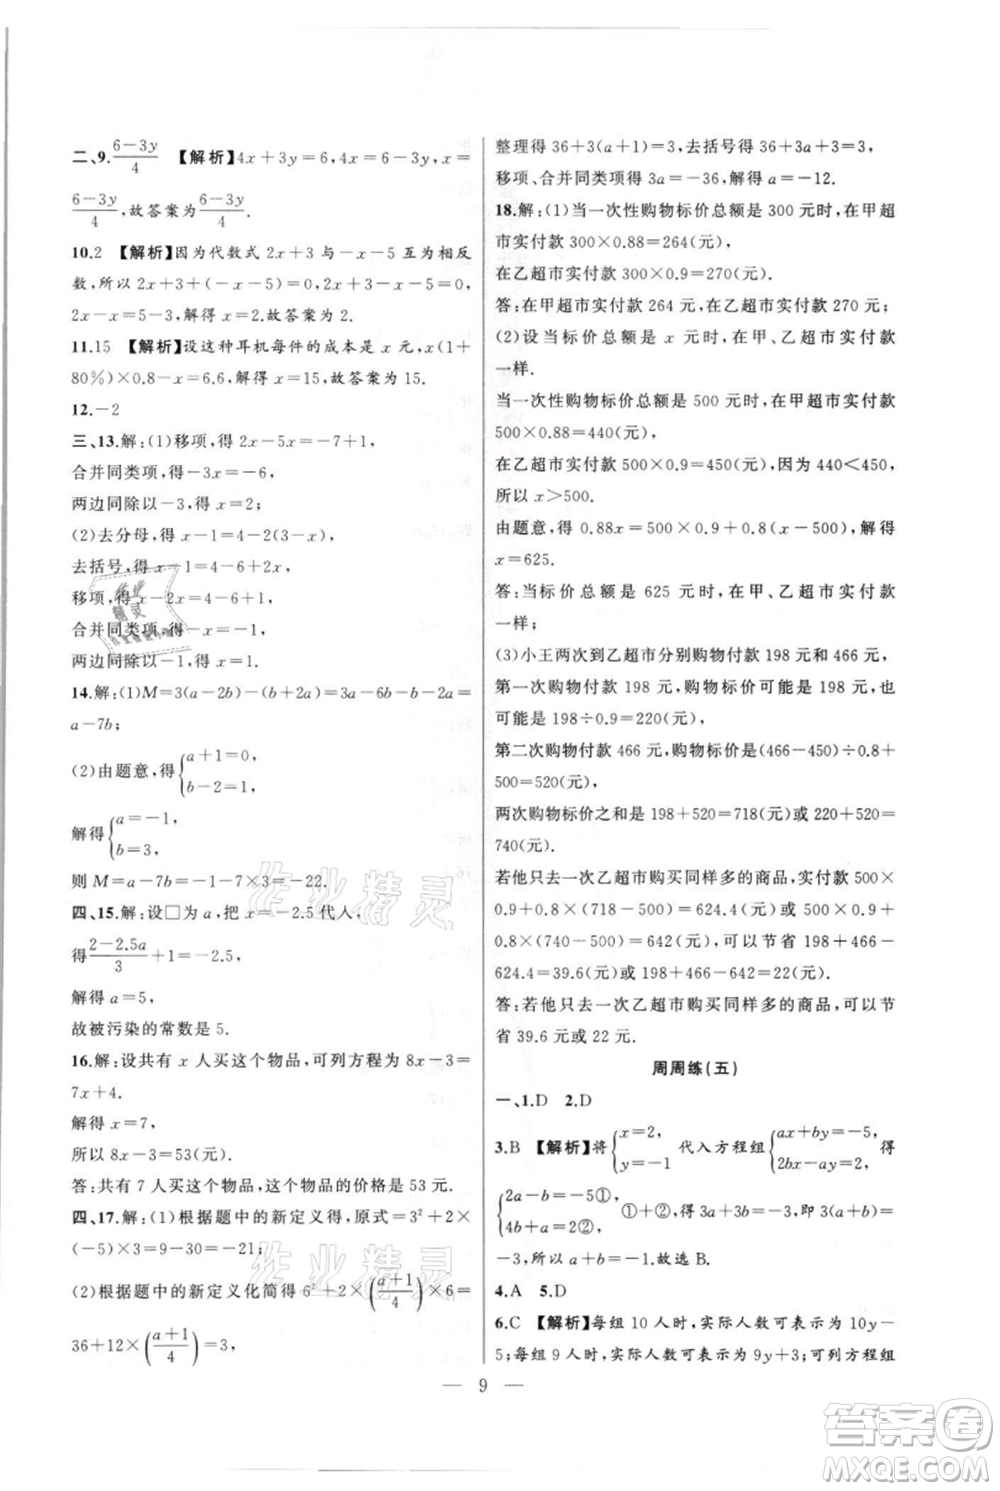 二、9.$\frac{6-3y}{4}$ 【解析】4x+3y=6,4x=6-3y,x=
$\frac{6-3y}{4}$,故答案为$\frac{6-3y}{4}$.
10.2 【解析】因为代数式 2x+3 与-x-5 互为相反
数,所以 2x+3+(-x-5)=0,去括号,得 2x+3
-x-5=0,
2x-x=5-3,解得 x=2.故答案为 2.
11.15 【解析】设这种耳机每件的成本是 x 元,x(1+
80%)×0.8-x=6.6,解得 x=15,故答案为 15.
12.-2
三、13.解:(1)移项,得 2x-5x=-7+1,
合并同类项,得-3x=-6,
两边同除以-3,得 x=2;
(2)去分母,得 x-1=4-2(3-x),
去括号,得 x-1=4-6+2x,
移项,得 x-2x=4-6+1,
合并同类项,得-x=-1,
两边同除以-1,得 x=1.
14.解:(1)M=3(a-2b)-(b+2a)=3a-6b-b-2a=
a-7b;
(2)由题意,得{a+1=0,
b-2=1,
解得{a=-1,
b=3,
则 M=a-7b=-1-7×3=-22.
四、15.解:设□为 a,把 x=-2.5 代人,
得$\frac{2-2.5a}{3}$+1=-2.5,
解得 a=5,
故被污染的常数是 5.
16.解:设共有 x 人买这个物品,可列方程为 8x-3=
7x+4.
解得 x=7,
所以 8x-3=53(元).
答:共有 7 人买这个物品,这个物品的价格是 53 元.
四、17.解:(1)根据题中的新定义得,原式=3²+2×
(-5)×3=9-30=-21;
(2)根据题中的新定义化简得 6²+2×($\frac{a+1}{4}$)×6=
36+12×($\frac{a+1}{4}$)=3,
整理得 36+3(a+1)=3,去括号得 36+3a+3=3,
移项、合并同类项得 3a=-36,解得 a=-12.
18.解:(1)当一次性购物标价总额是 300 元时,在甲超
市实付款 300×0.88=264(元),
在乙超市实付款 300×0.9=270(元).
答:在甲超市实付款 264 元,在乙超市实付款 270 元;
(2)设当标价总额是 x 元时,在甲、乙超市实付款
一样.
当一次性购物标价总额是 500 元时,在甲超市实付款
500×0.88=440(元),
在乙超市实付款 500×0.9=450(元),因为 440<450,
所以 x>500.
由题意,得 0.88x=500×0.9+0.8(x-500),解得
x=625.
答:当标价总额是 625 元时,在甲、乙超市实付款
一样;
(3)小王两次到乙超市分别购物付款 198 元和 466 元,
第一次购物付款 198 元,购物标价可能是 198 元,也
可能是 198÷0.9=220(元),
第二次购物付款 466 元,购物标价是(466-450)÷0.8+
500=520(元),
两次购物标价之和是 198+520=718(元)或 220+520=
740(元).
若他只去一次乙超市购买同样多的商品,实付款 500×
0.9+0.8×(718-500)=624.4(元)或 500×0.9+
0.8×(740-500)=642(元),可以节省 198+466-
624.4=39.6(元)或 198+466-642=22(元).
答:若他只去一次乙超市购买同样多的商品,可以节
省 39.6 元或 22 元.
周周练(五)
一、1.D 2.D
3.B 【解析】将{x=2,
y=-1 代入方程组{ax+by=-5,
2bx-ay=2, 得
{2a-b=-5①,
4b+a=2②, ①+②,得 3a+3b=-3,即 3(a+b)=
-3,所以 a+b=-1.故选 B.
4.A 5.D
6.C 【解析】每组 10 人时,实际人数可表示为 10y-
5;每组 9 人时,实际人数可表示为 9y+3;可列方程组
— 9 —
作业精灵
作业精灵
作业
精灵
答案卷
MXQE.COM